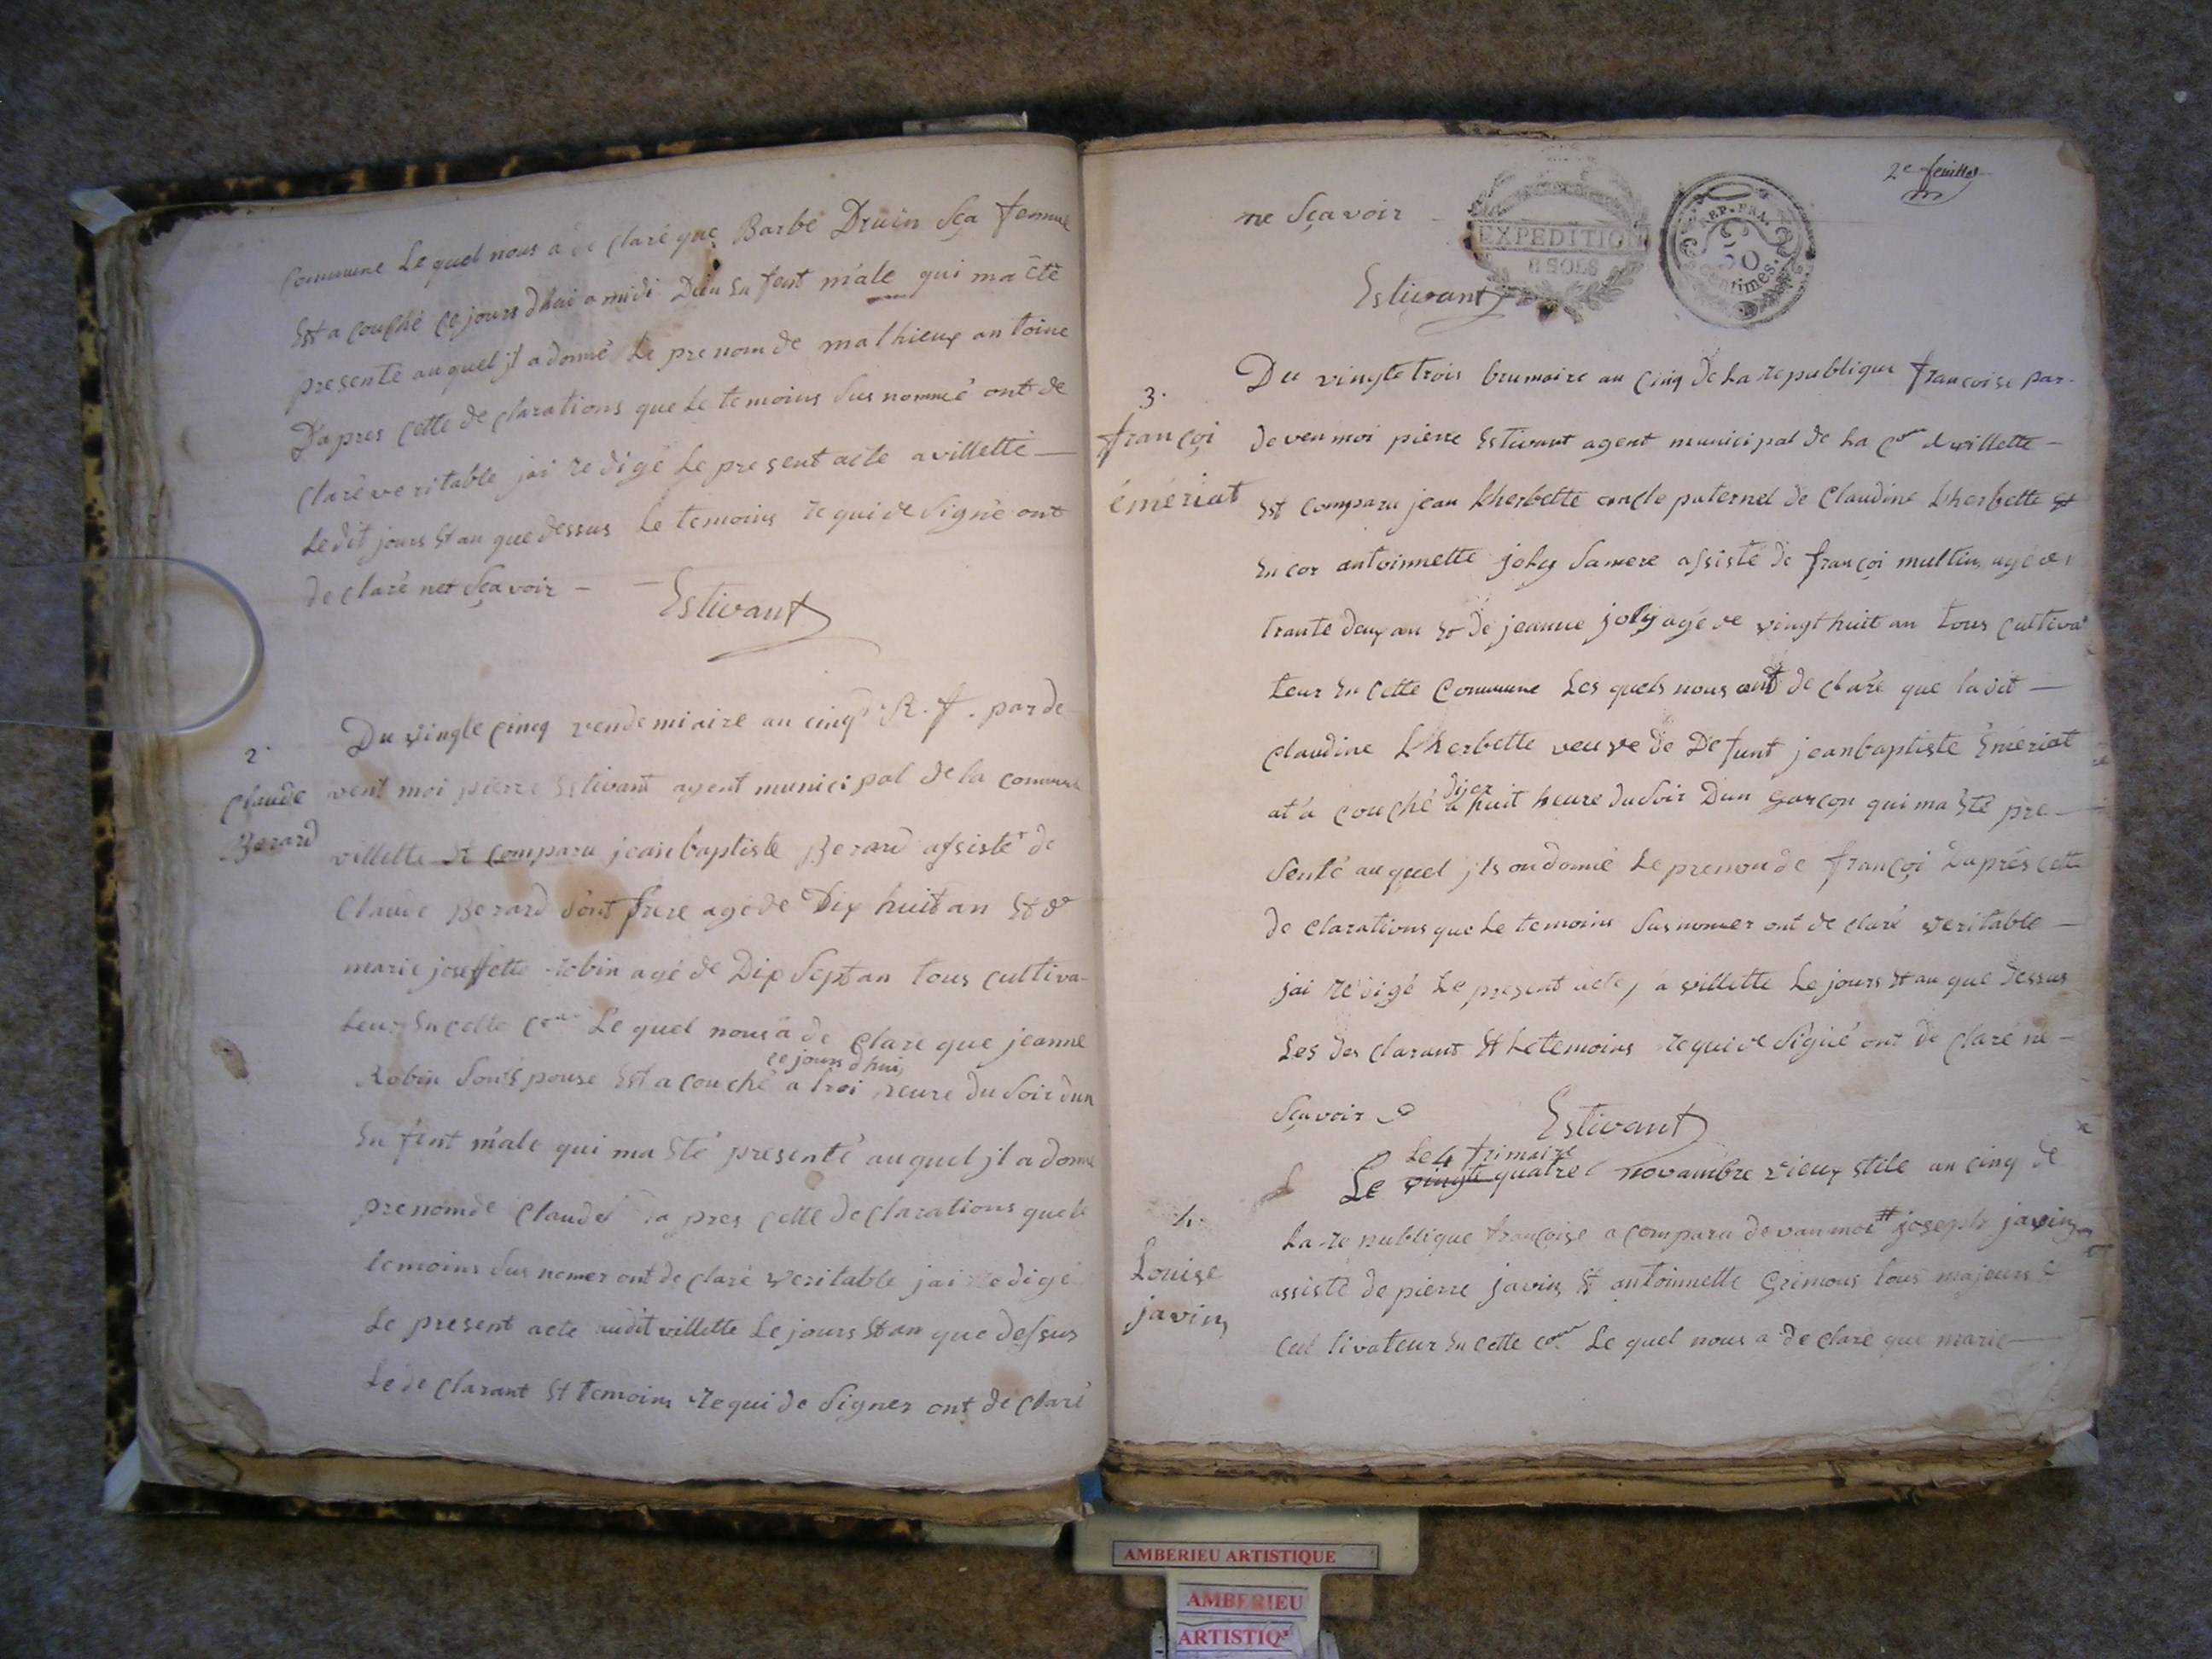 Commune Le quel nous à de claré que Barbe Druin Sça femme
Est a couché ce jours dhui a midi Dun En fent mâle qui ma été
presenté au quel jl a donné Le prenom de mathieux antoine
Dapres cette de clarations que Le temoins Sus nommé ont de
claré veritable jai redigé Le present acte a villette —
Le dit jours Et an que dessus Le temoins requi de Signé ont
de claré net Sçavoir — Estivant
2.
Claude
Berard
Du vingte cinq vendemiaire an cinq R. f. par de
vent moi pierre Estivant agent municipal de la commune
villette Et comparu jean baptiste Berard assisté de
Claude Berard Sont frere agé de Dix huit an Et de
marie joseffette robin agé de Dix Sept an tous cultiva-
teur En cette Com Le quel nous à de Claré que jeanne
ce jours dhui
Robin Sont Épouse Est a couché a troi heure du Soir dun
En fent mâle qui ma Eté presenté au quel jl a donné
prenom de Claude Da pres cette de clarations que le
temoins Sus nomer ont de claré veritable jai redigé
Le present acte audit villette Le jours Et an que dessus
Le de clarant Et temoins requi de Signer ont de claré
2e feuillet
ne Sçavoir —
EXPEDITION
6 SOLS
REP. FRA.
50
centimes.
Estivant
3.
françoi
émériat
Du vingte trois brumaire an Cinq de La republique francoise par-
de ven moi pierre Estivant agent municipal de La Com de villette —
Est Comparu jean Lherbette oncle paternel de Claudine Lherbette Et
En cor antoinnette joly Sa mere assisté de françoi multin agé de
trante deux an Et de jeanne joly agé de vingt huit an tous cultiva
teur En Cette Commune Les quels nous ont de claré que ladit —
Claudine Lherbette veuve de Defunt jean baptiste Émériat
dijer
at'a couché a huit heure du Soir Dun garçon qui ma Eté pre —
Senté au quel jls on donné Le prenon de françoi Daprés cette
de clarations que Le temoins Sus nomer ont de claré veritable —
jai redigé Le present acte, a villette Le jours Et an que dessus
Les des clarant Et Le temoins requi de Signé ont de claré ne —
Sçavoir Estivant
4.
Louise
javin
Le 4 frimaire
Le vingte quatre novambre vieux stile an cinq de
La re publique françoise a comparu de van moi # joseph javin
assisté de pierre javin Et antoinnette Grimous tous majeurs Et
Cul tivateur En Cette Com Le quel nous a de claré que marie —
AMBERIEU ARTISTIQUE
AMBERIEU
ARTISTIQ